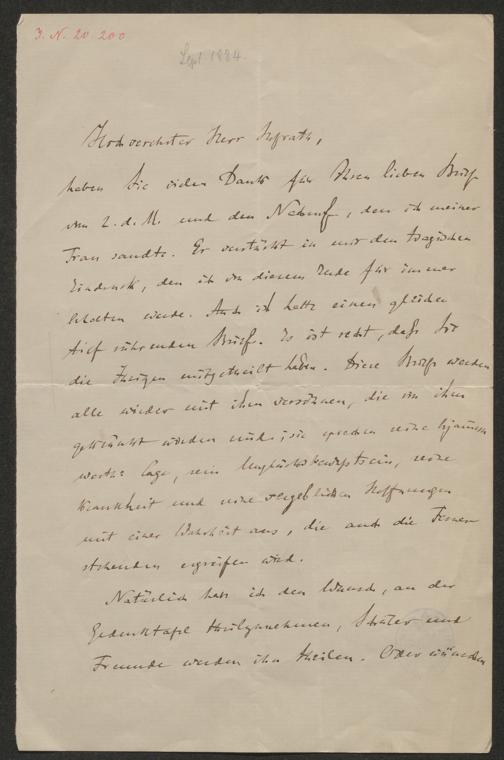 J. N. 20 200
Sept. 1884.
Hochverehrter Herr Hofrath,
haben Sie vielen Dank für Ihren lieben Brief
vom 2. d. M. und den Nachruf, den ich meiner
Frau sandte. Er verstärkt in mir den tragischen
Eindruck, den ich von diesem Ende für immer
behalten werde. Auch ich hatte einen gleichen
tief rührenden Brief. Es ist recht, daß Sie
die Ihrigen mitgetheilt haben. Diese Briefe werden
alle wieder mit ihm versöhnen, die von ihm
gekränkt worden sind; sie sprechen seine
werthe Lage, sein Unglücksbewußtsein, seine
Krankheit und seine vergeblichen Hoffnungen
mit einer Wahrheit aus, die auch die Ferner
stehenden ergreifen wird.
Natürlich habe ich den Wunsch, an der
Gedenktafel theilzunehmen, Schüler und
Freunde werden ihn theilen. Oder